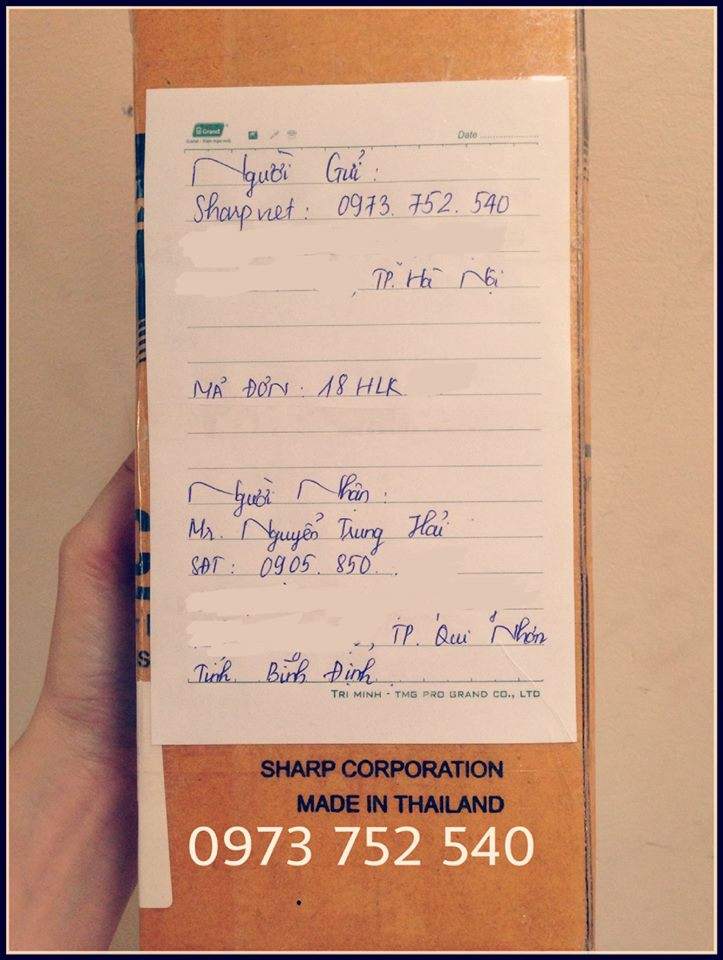 Grand
Date
Người Gửi :
Sharpnet : 0973. 752. 540
, TP. Hà Nội
MÃ ĐƠN : 18 HLK
Người Nhận :
Mr. Nguyễn Trung Hải
SĐT : 0905. 850
, TP. Qui Nhơn
Tỉnh Bình Định
TRI MINH - TMG PRO GRAND CO., LTD
SHARP CORPORATION
MADE IN THAILAND
0973 752 540